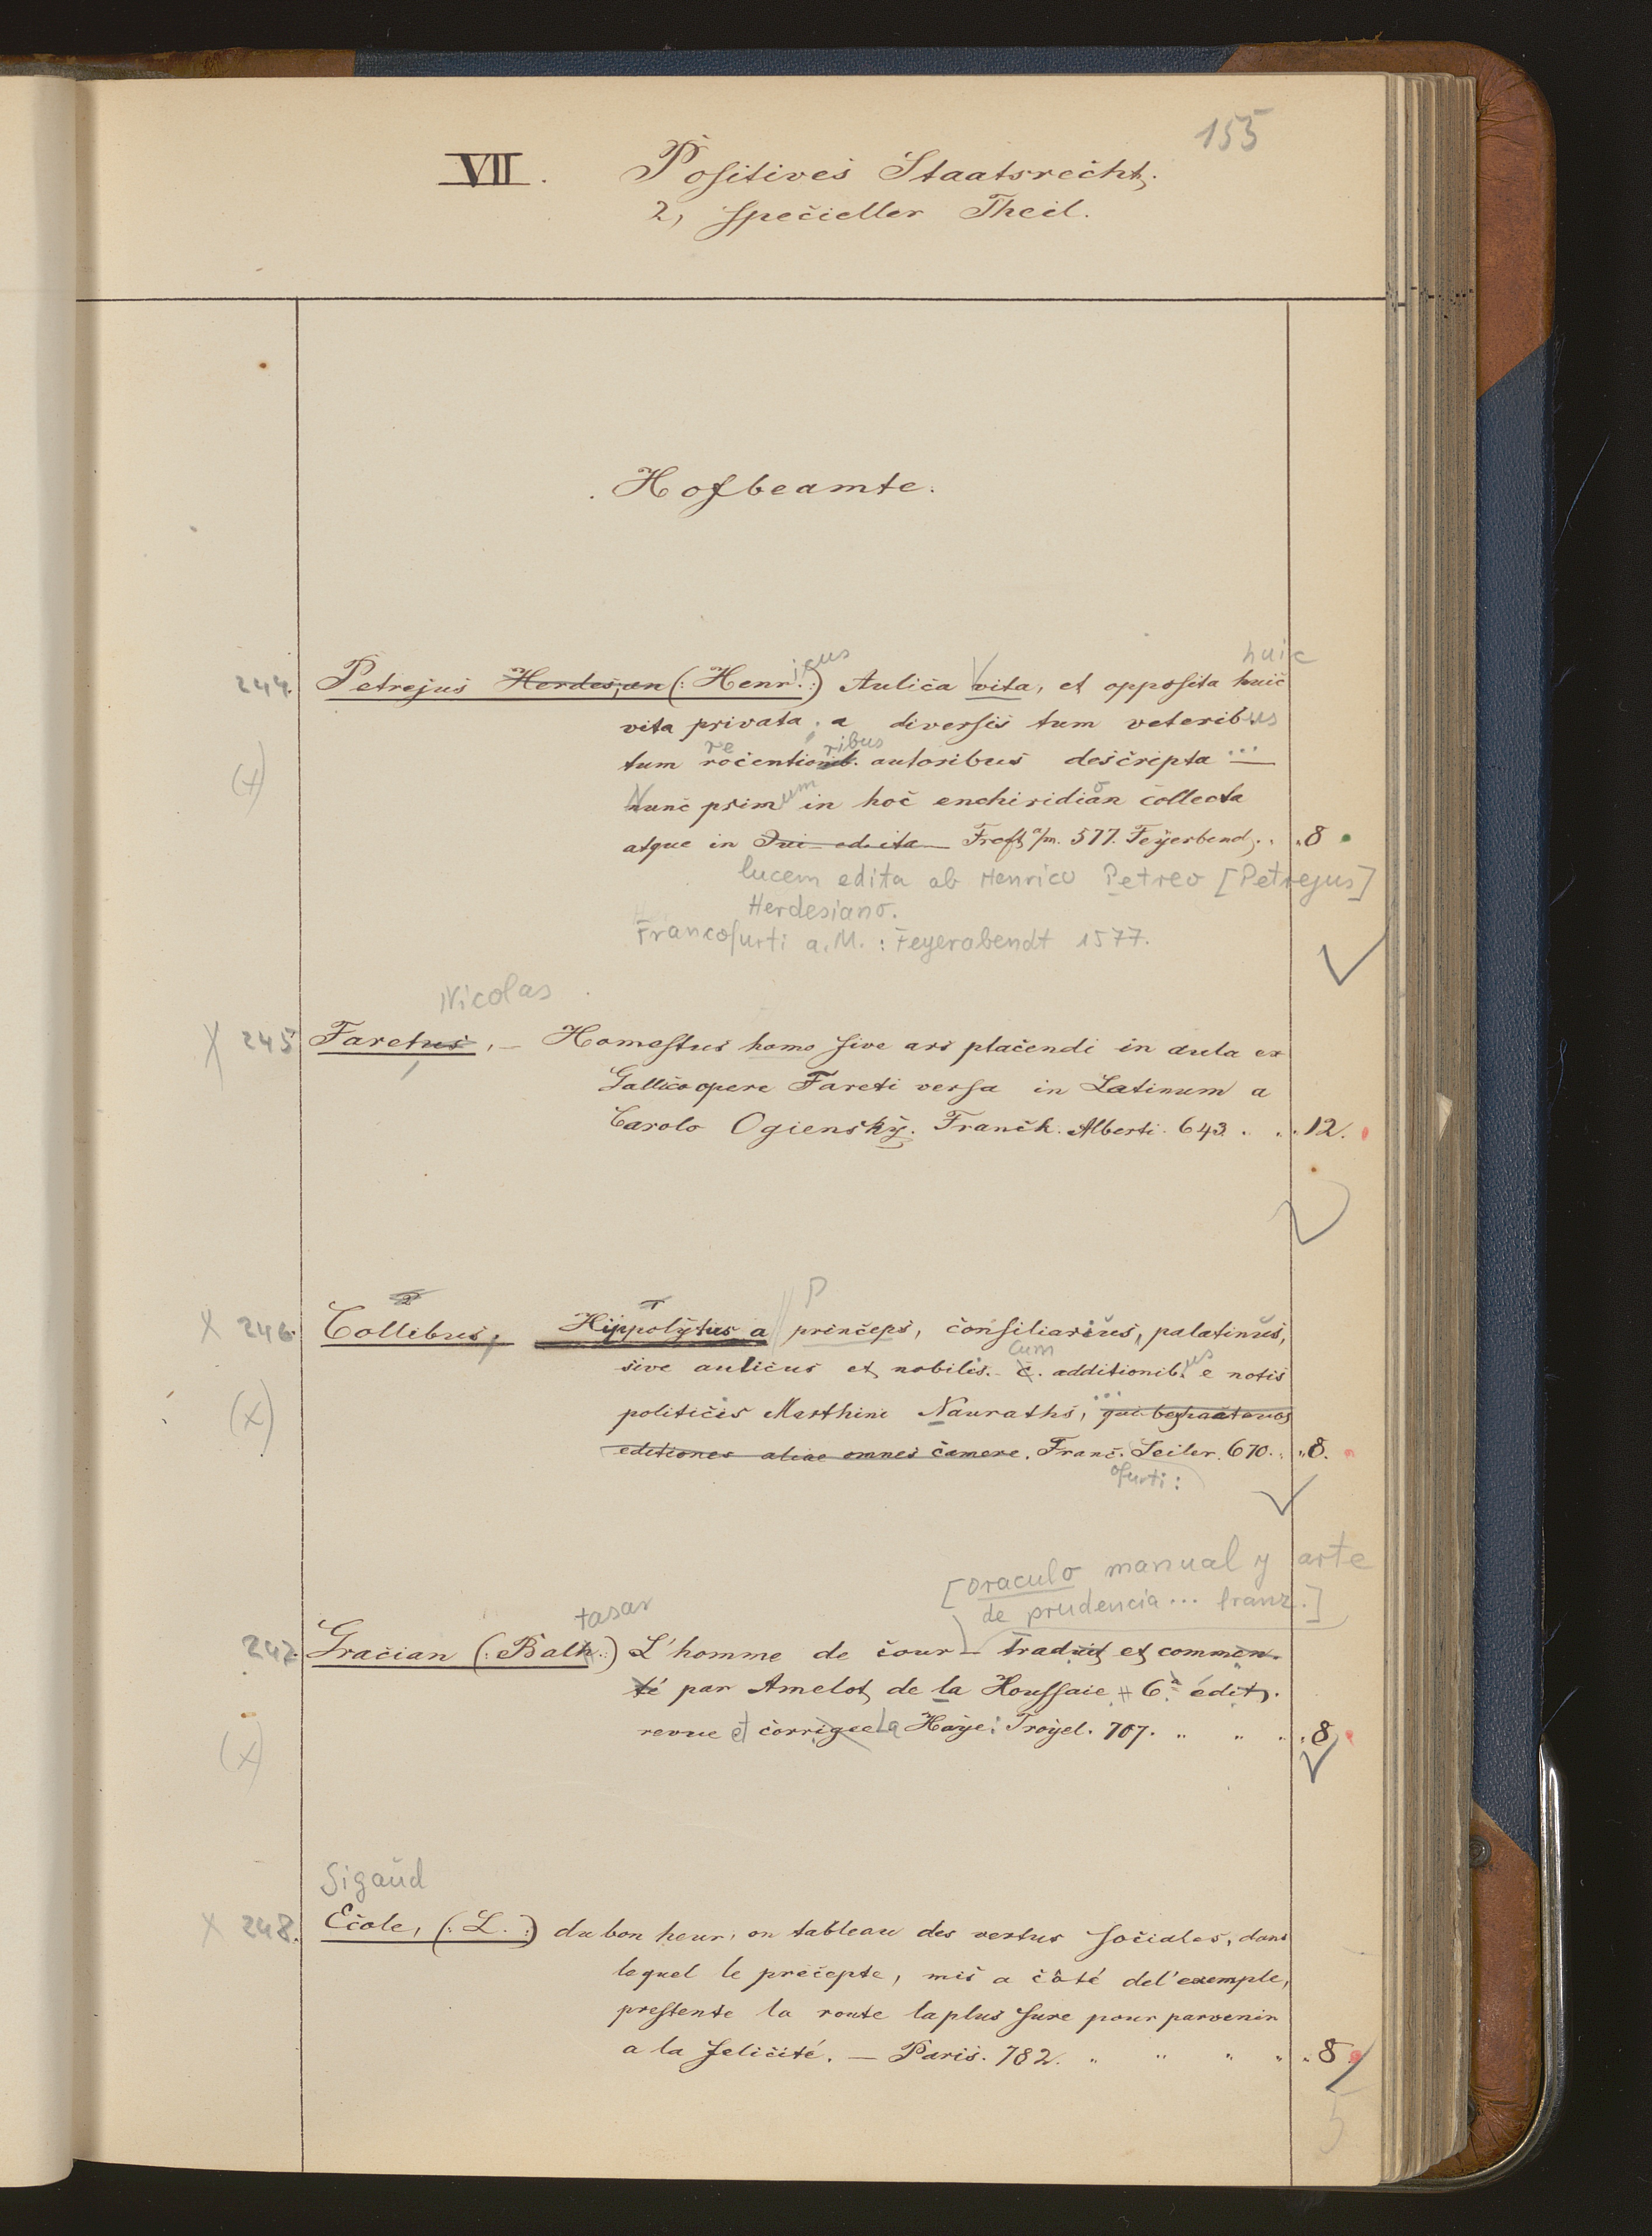 155
VII. Positives Staatsrecht.
2, specieller Theil.
Hofbeamte.
huic
icus
244. Petrejus Herdesian (: Henr. :) Aulica vita, et opposita huic
vita privata, a diversis tum veteribus
re ribus
tum rocentiorib. autoribus descripta ...
(x)
um o
Nunc prim in hoc enchiridian collecta
atque in edita Frcft a/m. 577. Feyerbend. „ 8
lucem edita ab Henrico Petreo [Petrejus]
Herdesiano.
Francofurti a. M. : Feyerabendt 1577.
Nicolas
X 245 Faretus, — Homestus homo sive ars placendi in aula ex
Gallico opere Fareti versa in Latinum a
Carolo Ogiensky. Franck. Alberti. 643. „ 12.
P
X 246. Collibus, Hippolytus a princeps, consiliarius, palatinus,
cum us
sive aulicus et nobilis. c. additionib. e notis
(x)
politicis Marthini Naurathi, ...
editiones aliae omnes camere. Franc. Seiler. 670. „ 8.
ofurti :
[Oraculo manual y arte
de prudencia ... franz.]
tasar
247. Gracian (: Balth :) L'homme de cour — traduit et commen-
té par Amelot de la Houssaie + 6e édit.
revue et corrigee La Haye : Troyel. 707. „ „ „ 8
(x)
Sigaud
X 248. Ecole, (: L. :) du bon heur, ou tableau des vertus sociales, dans
lequel le precepte, mis a côté del'exemple,
prestente la route laplus sure pour parvenir
a la felicité. — Paris. 782. „ „ „ „ 8
5